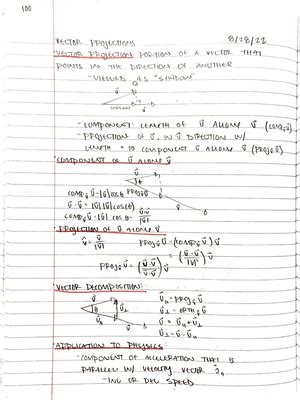 100
VECTOR PROJECTIONS 8/28/22
VECTOR PROJECTION PORTION OF A VECTOR THAT
POINTS IN THE DIRECTION OF ANOTHER
- VIEWED AS "SHADOW"
- COMPONENT LENGTH OF ū ALONG v̄ (COMPᵥ̄ ū)
- PROJECTION OF ū, IN v̄ DIRECTION W/
LENGTH = TO COMPONENT ū ALONG v̄ (PROJᵥ̄ ū)
COMPONENT OF ū ALONG v̄
COMPᵥ̄ ū = |ū| cos θ PROJᵥ̄ ū
ū · v̄ = |ū| |v̄| cos(θ)
COMPᵥ̄ ū = |ū| cos θ = ū·v̄/|v̄|
PROJECTION OF ū ALONG v̄
v̂ = v̄/|v̄| PROJᵥ̄ ū = (COMPᵥ̄ ū) v̂
PROJᵥ̄ ū = (ū·v̄/|v̄|) v̄/|v̄| = (ū·v̄/|v̄|²) v̄
VECTOR DECOMPOSITION:
ū₁₁ = PROJᵥ̄ ū
ū⊥ = ORTHᵥ̄ ū
ū = ū₁₁ + ū⊥
APPLICATION TO PHYSICS
- COMPONENT OF ACCELERATION THAT IS
PARALLEL W/ VELOCITY VECTOR
- INC OR DEC SPEED